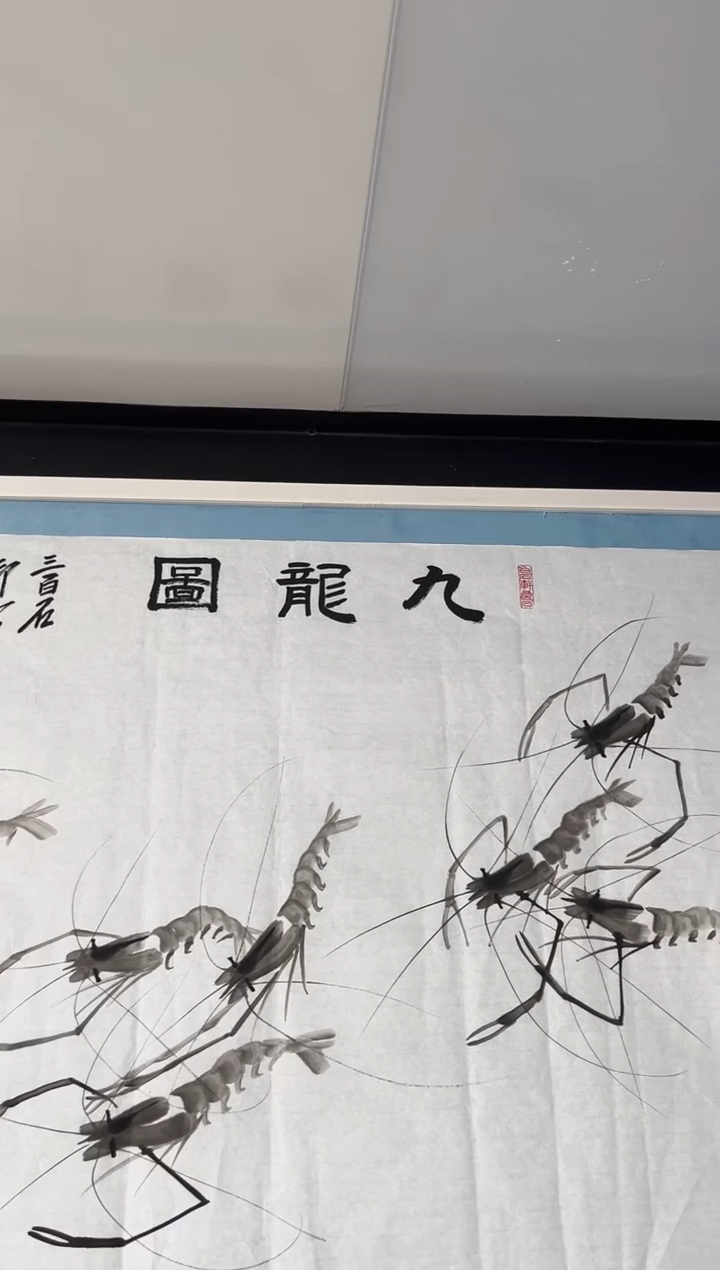 九龍圖
三百石